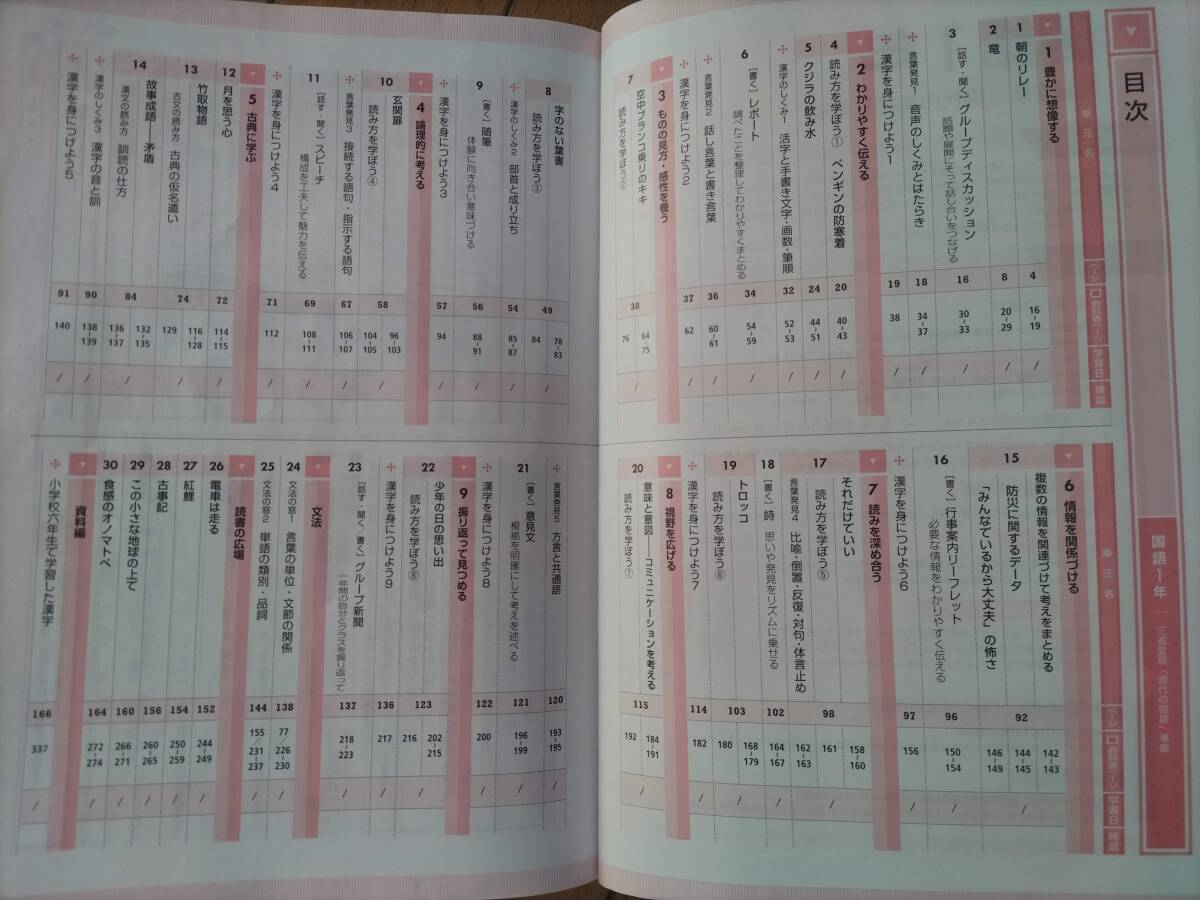 目次
国語1年
三省堂版「現代の国語」準拠
単元名
ページ
教科書ページ
学習日
確認
1 豊かに想像する
1 朝のリレー 4 16-19 /
2 竜 8 20-29 /
3 [話す・聞く] グループディスカッション 16 30-33 /
話題や展開にそって話し合いをつなげる
言葉発見1 音声のしくみとはたらき 18 34-37 /
漢字を身につけよう1 19 38 /
2 わかりやすく伝える
4 読み方を学ぼう① ペンギンの防寒着 20 40-43 /
5 クジラの飲み水 24 44-51 /
漢字のしくみ1 活字と手書き文字・画数・筆順 32 52-53 /
6 [書く] レポート 34 54-59 /
調べたことを整理してわかりやすくまとめる
言葉発見2 話し言葉と書き言葉 36 60-61 /
漢字を身につけよう2 37 62 /
3 ものの見方・感性を養う
7 空中ブランコ乗りのキキ 38 64-75 /
読み方を学ぼう② 76
8 字のない葉書 49 78-83 /
読み方を学ぼう③ 84
漢字のしくみ2 部首と成り立ち 54 85-87 /
9 [書く] 随筆 56 88-91 /
体験に向き合い意味づける
漢字を身につけよう3 57 94 /
4 論理的に考える
10 玄関扉 58 96-103 /
読み方を学ぼう④ 104-105
言葉発見3 接続する語句・指示する語句 67 106-107 /
11 [話す・聞く] スピーチ 69 108-111 /
構成を工夫して魅力を伝える
漢字を身につけよう4 71 112 /
5 古典に学ぶ
12 月を思う心 72 114-115 /
13 竹取物語 74 116-128 /
古文の読み方 古典の仮名遣い 129
14 故事成語――矛盾 84 132-135 /
漢文の読み方 訓読の仕方 136-137
漢字のしくみ3 漢字の音と訓 90 138-139 /
漢字を身につけよう5 91 140 /
単元名
ページ
教科書ページ
学習日
確認
6 情報を関係づける
15 複数の情報を関連づけて考えをまとめる 92 142-143 /
防災に関するデータ 144-145
「みんなでいるから大丈夫」の怖さ 146-149
16 [書く] 行事案内リーフレット 96 150-154 /
必要な情報をわかりやすく伝える
漢字を身につけよう6 97 156 /
7 読みを深め合う
17 それだけでいい 98 158-160 /
読み方を学ぼう⑤ 161
言葉発見4 比喩・倒置・反復・対句・体言止め 162-163
18 [書く] 詩 思いや発見をリズムに乗せる 102 164-167 /
19 トロッコ 103 168-179 /
読み方を学ぼう⑥ 180
漢字を身につけよう7 114 182 /
8 視野を広げる
20 意味と意図――コミュニケーションを考える 115 184-191 /
読み方を学ぼう⑦ 192
言葉発見5 方言と共通語 120 193-195 /
21 [書く] 意見文 121 196-199 /
根拠を明確にして考えを述べる
漢字を身につけよう8 122 200 /
9 振り返って見つめる
22 少年の日の思い出 123 202-215 /
読み方を学ぼう⑧ 216
漢字を身につけよう9 136 217 /
23 [話す・聞く・書く] グループ新聞 137 218-223 /
一年間の自分とクラスを振り返って
文法
24 文法の窓1 言葉の単位・文節の関係 138 77/226-230 /
25 文法の窓2 単語の類別・品詞 144 155/231-237 /
読書の広場
26 電車は走る 152 244-249 /
27 紅鯉 154 250-259 /
28 古事記 156 260-265 /
29 この小さな地球の上で 160 266-271 /
30 食感のオノマトペ 164 272-274 /
資料編
小学校六年生で学習した漢字 166 337 /